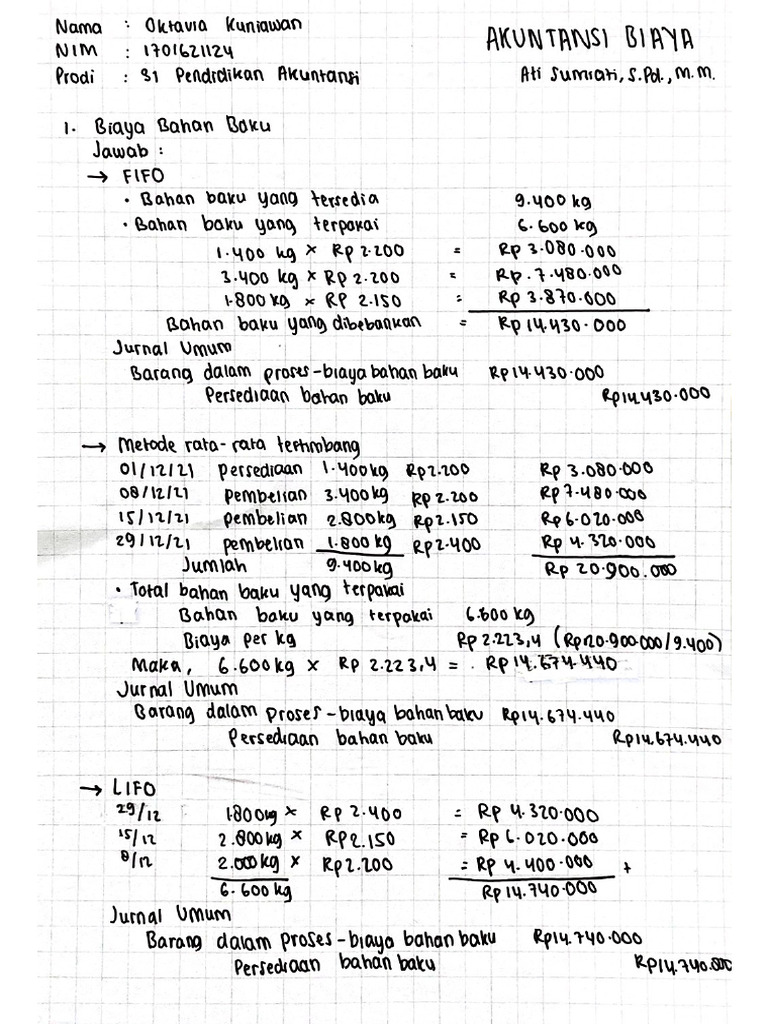 Nama : Oktavia Kuniawan
NIM : 1701621124
Prodi : S1 Pendidikan Akuntansi
AKUNTANSI BIAYA
Ati Sumiati, S.Pd., M.M.
1. Biaya Bahan Baku
Jawab :
→ FIFO
• Bahan baku yang tersedia 9.400 kg
• Bahan baku yang terpakai 6.600 kg
1.400 kg × Rp 2.200 = Rp 3.080.000
3.400 kg × Rp 2.200 = Rp. 7.480.000
1.800 kg × RP 2.150 = Rp 3.870.000
Bahan baku yang dibebankan = Rp 14.430.000
Jurnal Umum
Barang dalam proses - biaya bahan baku Rp 14.430.000
Persediaan bahan baku Rp 14.430.000
→ Metode rata-rata tertimbang
01/12/21 persediaan 1.400 kg Rp 2.200 Rp 3.080.000
08/12/21 pembelian 3.400 kg Rp 2.200 Rp 7.480.000
15/12/21 pembelian 2.800 kg Rp 2.150 Rp 6.020.000
29/12/21 pembelian 1.800 kg Rp 2.400 Rp 4.320.000
Jumlah 9.400 kg Rp 20.900.000
• Total bahan baku yang terpakai
Bahan baku yang terpakai 6.600 kg
Biaya per kg Rp 2.223,4 (Rp 20.900.000/9.400)
Maka, 6.600 kg × Rp 2.223,4 = Rp 14.674.440
Jurnal Umum
Barang dalam proses - biaya bahan baku Rp 14.674.440
Persediaan bahan baku Rp 14.674.440
→ LIFO
29/12 1.800 kg × Rp 2.400 = Rp 4.320.000
15/12 2.800 kg × RP 2.150 = Rp 6.020.000
8/12 2.000 kg × Rp 2.200 = Rp 4.400.000 +
6.600 kg Rp 14.740.000
Jurnal Umum
Barang dalam proses - biaya bahan baku Rp 14.740.000
Persediaan bahan baku Rp 14.740.000